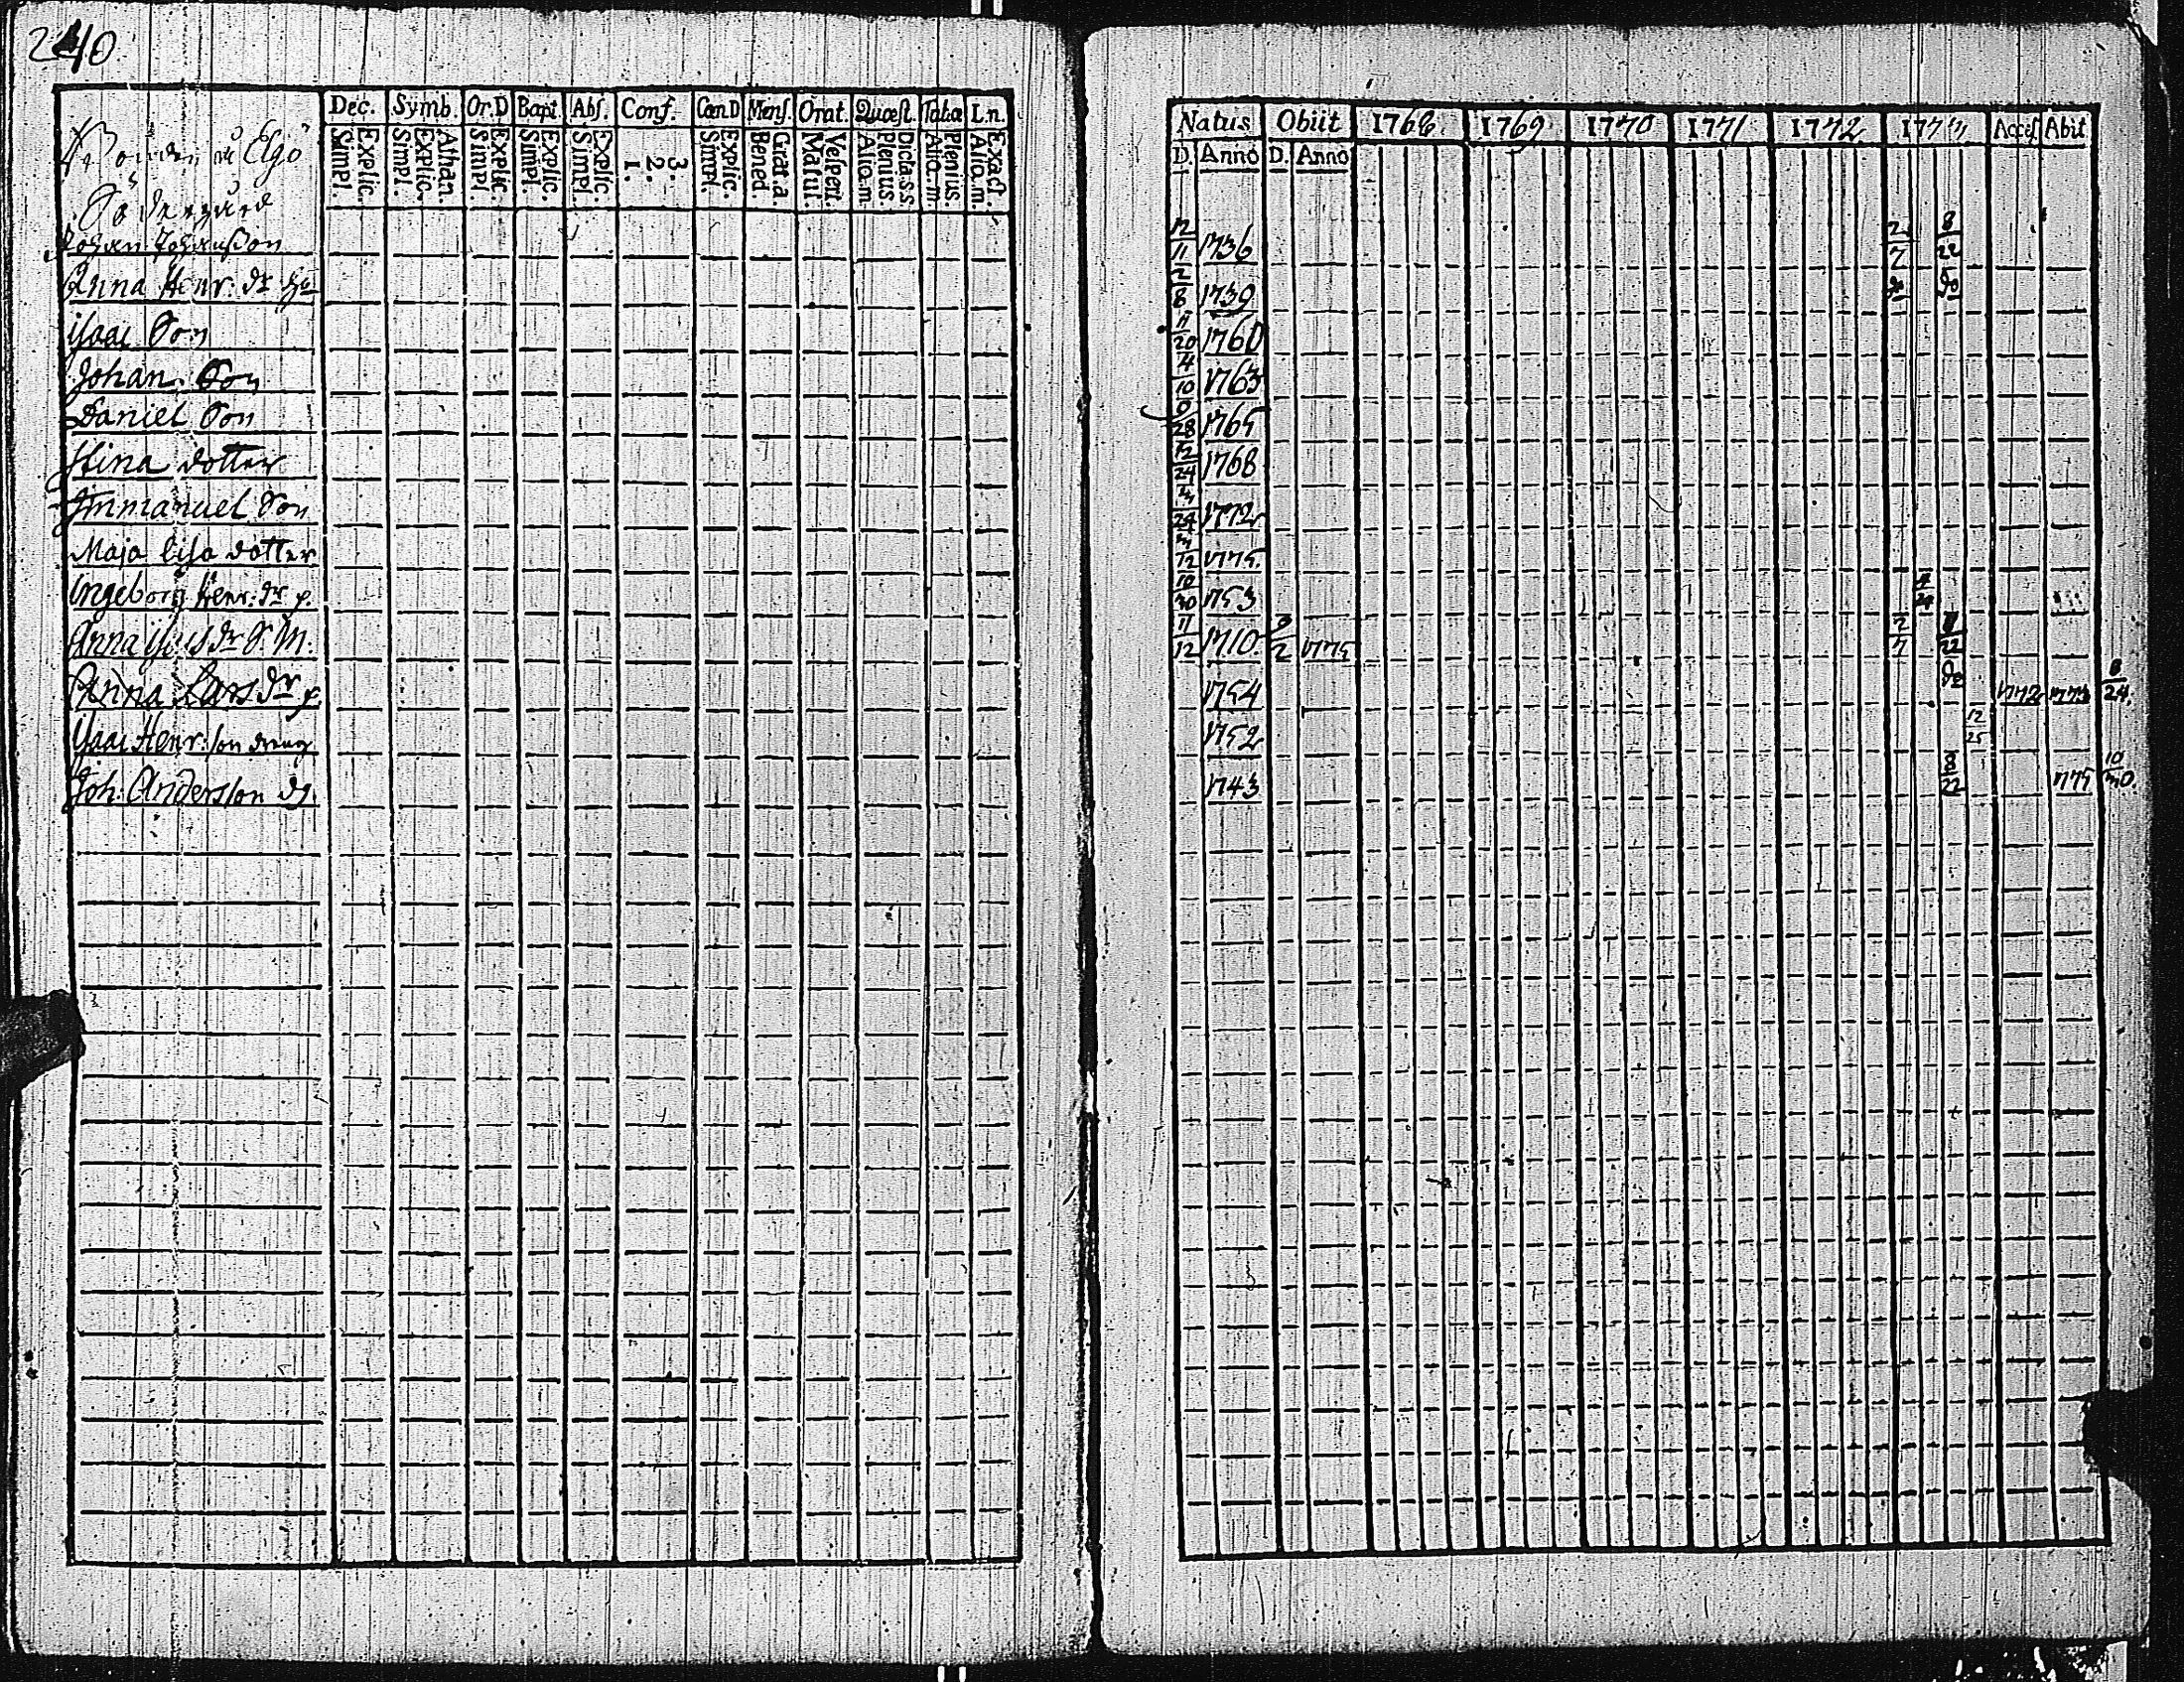 240
Dec. Symb. Or.D Bapt. Abſ. Conf. Cœn.D Menſ. Orat. Quæſt. Tab.œ L.n.
Simpl. Explic. Simpl. Explic. Athan. Simpl. Explic. Simpl. Explic. Simpl. Explic. 1. 2. 3. Simpl. Explic. Bened. Grat.a Matut. Veſpert. Alio.m Plenius Dicta.s.s Alio.m Plenius Alio.m Exact.
Elgö
Johan Johanſson
Anna Henr. dr
Iſaac Son
Johan Son
Daniel Son
Stina dotter
Immanuel Son
Maja Liſa dotter
Ingeborg Henr: dr p.
Anna dr S. M.
Anna Lars dr p.
Iſaac Henr:ſon dräng
Joh: Andersſon dg.
Natus Obiit 1768 1769 1770 1771 1772 1773 Acceſ. Abiit
D. Anno D. Anno
12/11 1736 2/7 8/22
2/8 1739 do do
11/20 1760
4/10 1763
9/28 1765
12/24 1768
4/24 1772
3/12 1775.
10/30 1753 4/24
11/12 1710. 3/2 1775 2/7 8/22
1754 do 1772 1773 8/24.
1752 12/25
1743 8/22 1775 10/30.